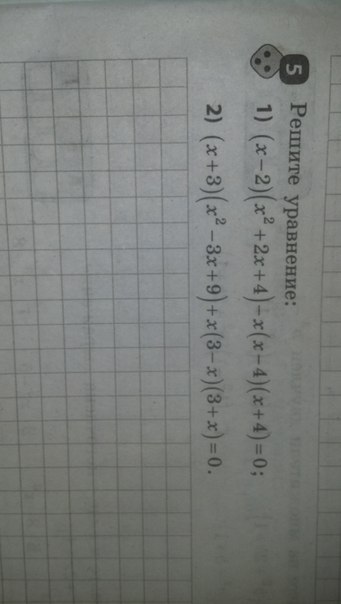 5 Решите уравнение:
1) (x−2)(x²+2x+4)−x(x−4)(x+4)=0;
2) (x+3)(x²−3x+9)+x(3−x)(3+x)=0.